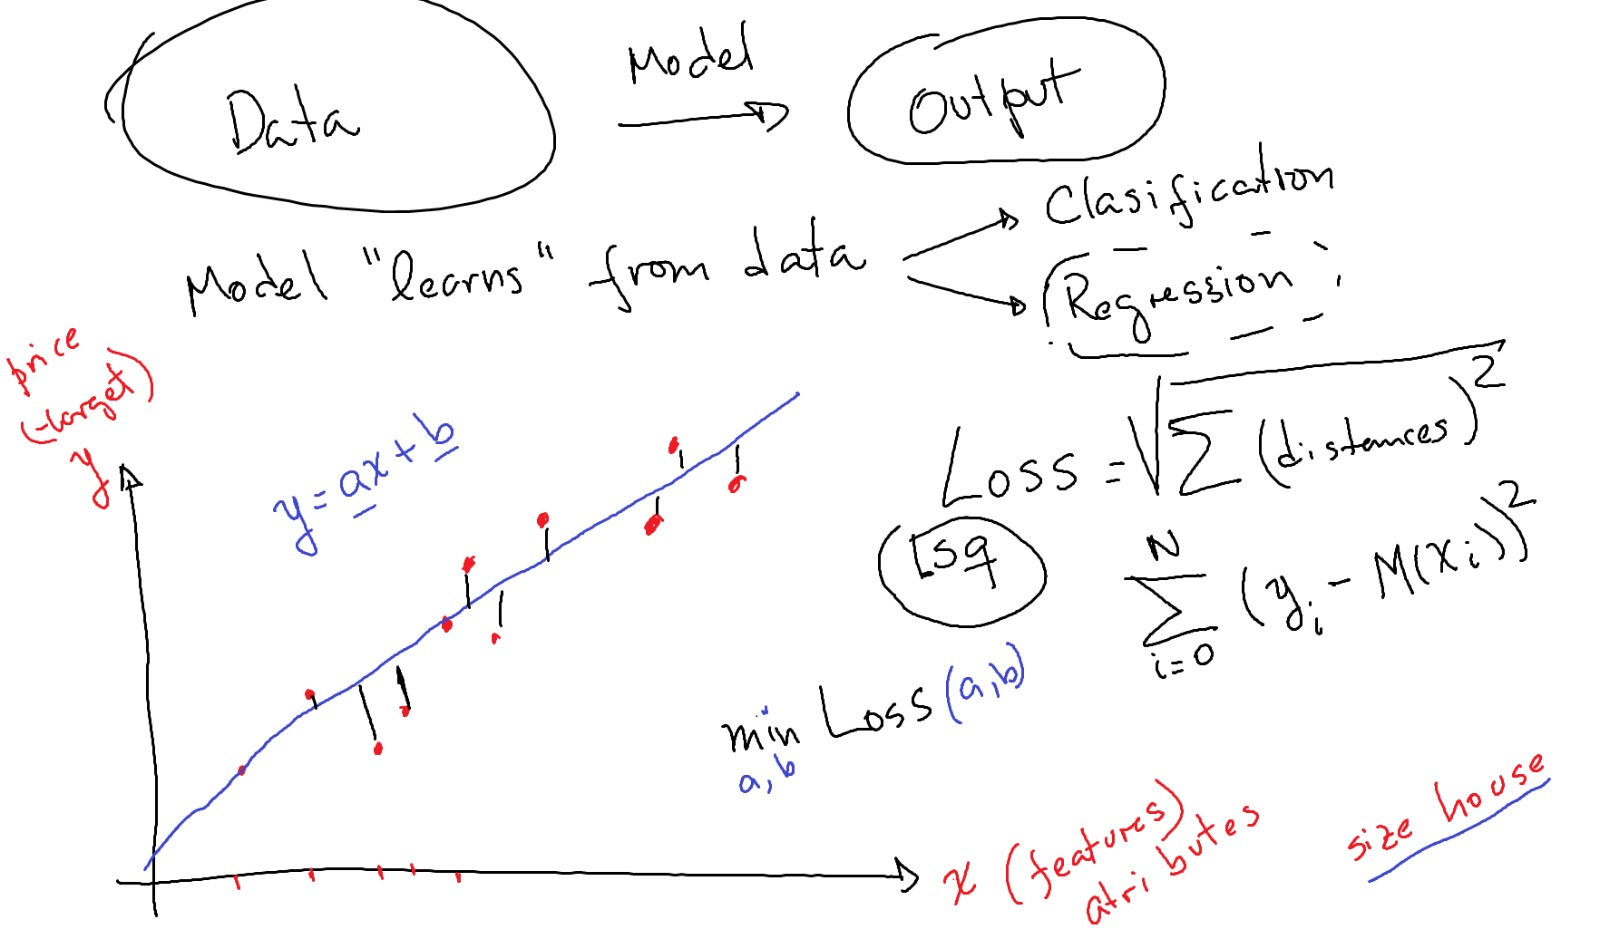 Data
Model
Output
Model "learns" from data
Clasification
Regression
price
(target)
y
y = ax + b
Loss = √Σ (distances)²
Lsq
N
Σ (yᵢ - M(xᵢ))²
i=0
min Loss (a,b)
a,b
x (features)
atributes
size house